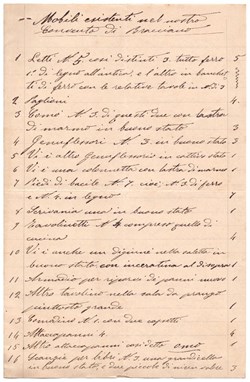 Mobili esistenti nel nostro
Convento di Bracciano
1 Letti N. 5 così distinti 3. tutto ferro 5
1. di legno all'antica, e l'altro in banchet
ti di ferro con le relative tavole in N. 3
2 Paglioni
3 Comò N. 3. di questi due con lastra 3
di marmo in buono stato
4 Genuflessori N. 3. in buono stato 3
5 Vi è altro Genuflessorio in cattivo stato 1
6 Vi è una colonnetta con lastra di marmo 1
7 Piedi di bacile N. 7. cioè N. 3 di ferro
e N. 4. in legno 7
8 Scrivania una in buono stato 1
9 Tavolinetti N. 4 compreso quello di
cucina 4
10 Vi è anche un
buono stato con incerativa al disopra 1
11 Armadio per riporvi di panni uno 1
12 Altro tavolino nella sala da pranzo
piuttosto grande 1
13 Comodino N. 1. con due
14 Attaccapanni 4. 4
15 Altro attaccapanni così detto omo 1
16 Scansie per libri N. 3 una grandicella
in buono stato, e due piccole di niun valore 3